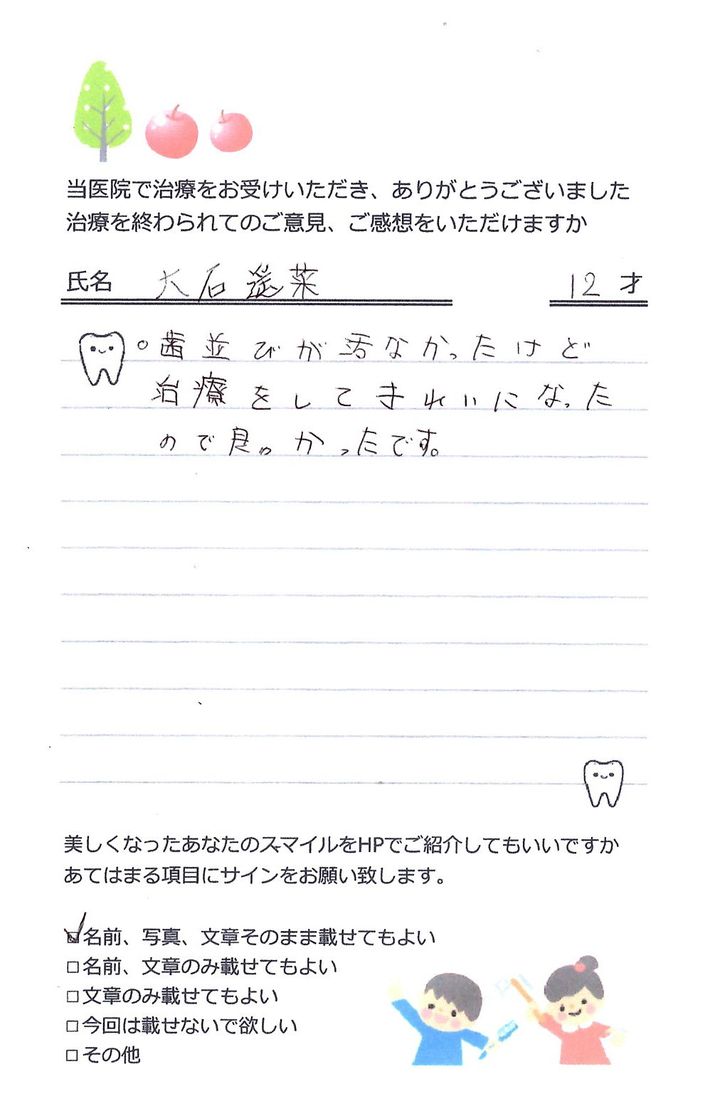 当医院で治療をお受けいただき、ありがとうございました
治療を終わられてのご意見、ご感想をいただけますか
氏名 大石遥菜 12才
歯並びが活なかったけど
治療をしてきれいになった
ので良かったです。
美しくなったあなたのスマイルをHPでご紹介してもいいですか
あてはまる項目にサインをお願い致します。
☑名前、写真、文章そのまま載せてもよい
□名前、文章のみ載せてもよい
□文章のみ載せてもよい
□今回は載せないで欲しい
□その他